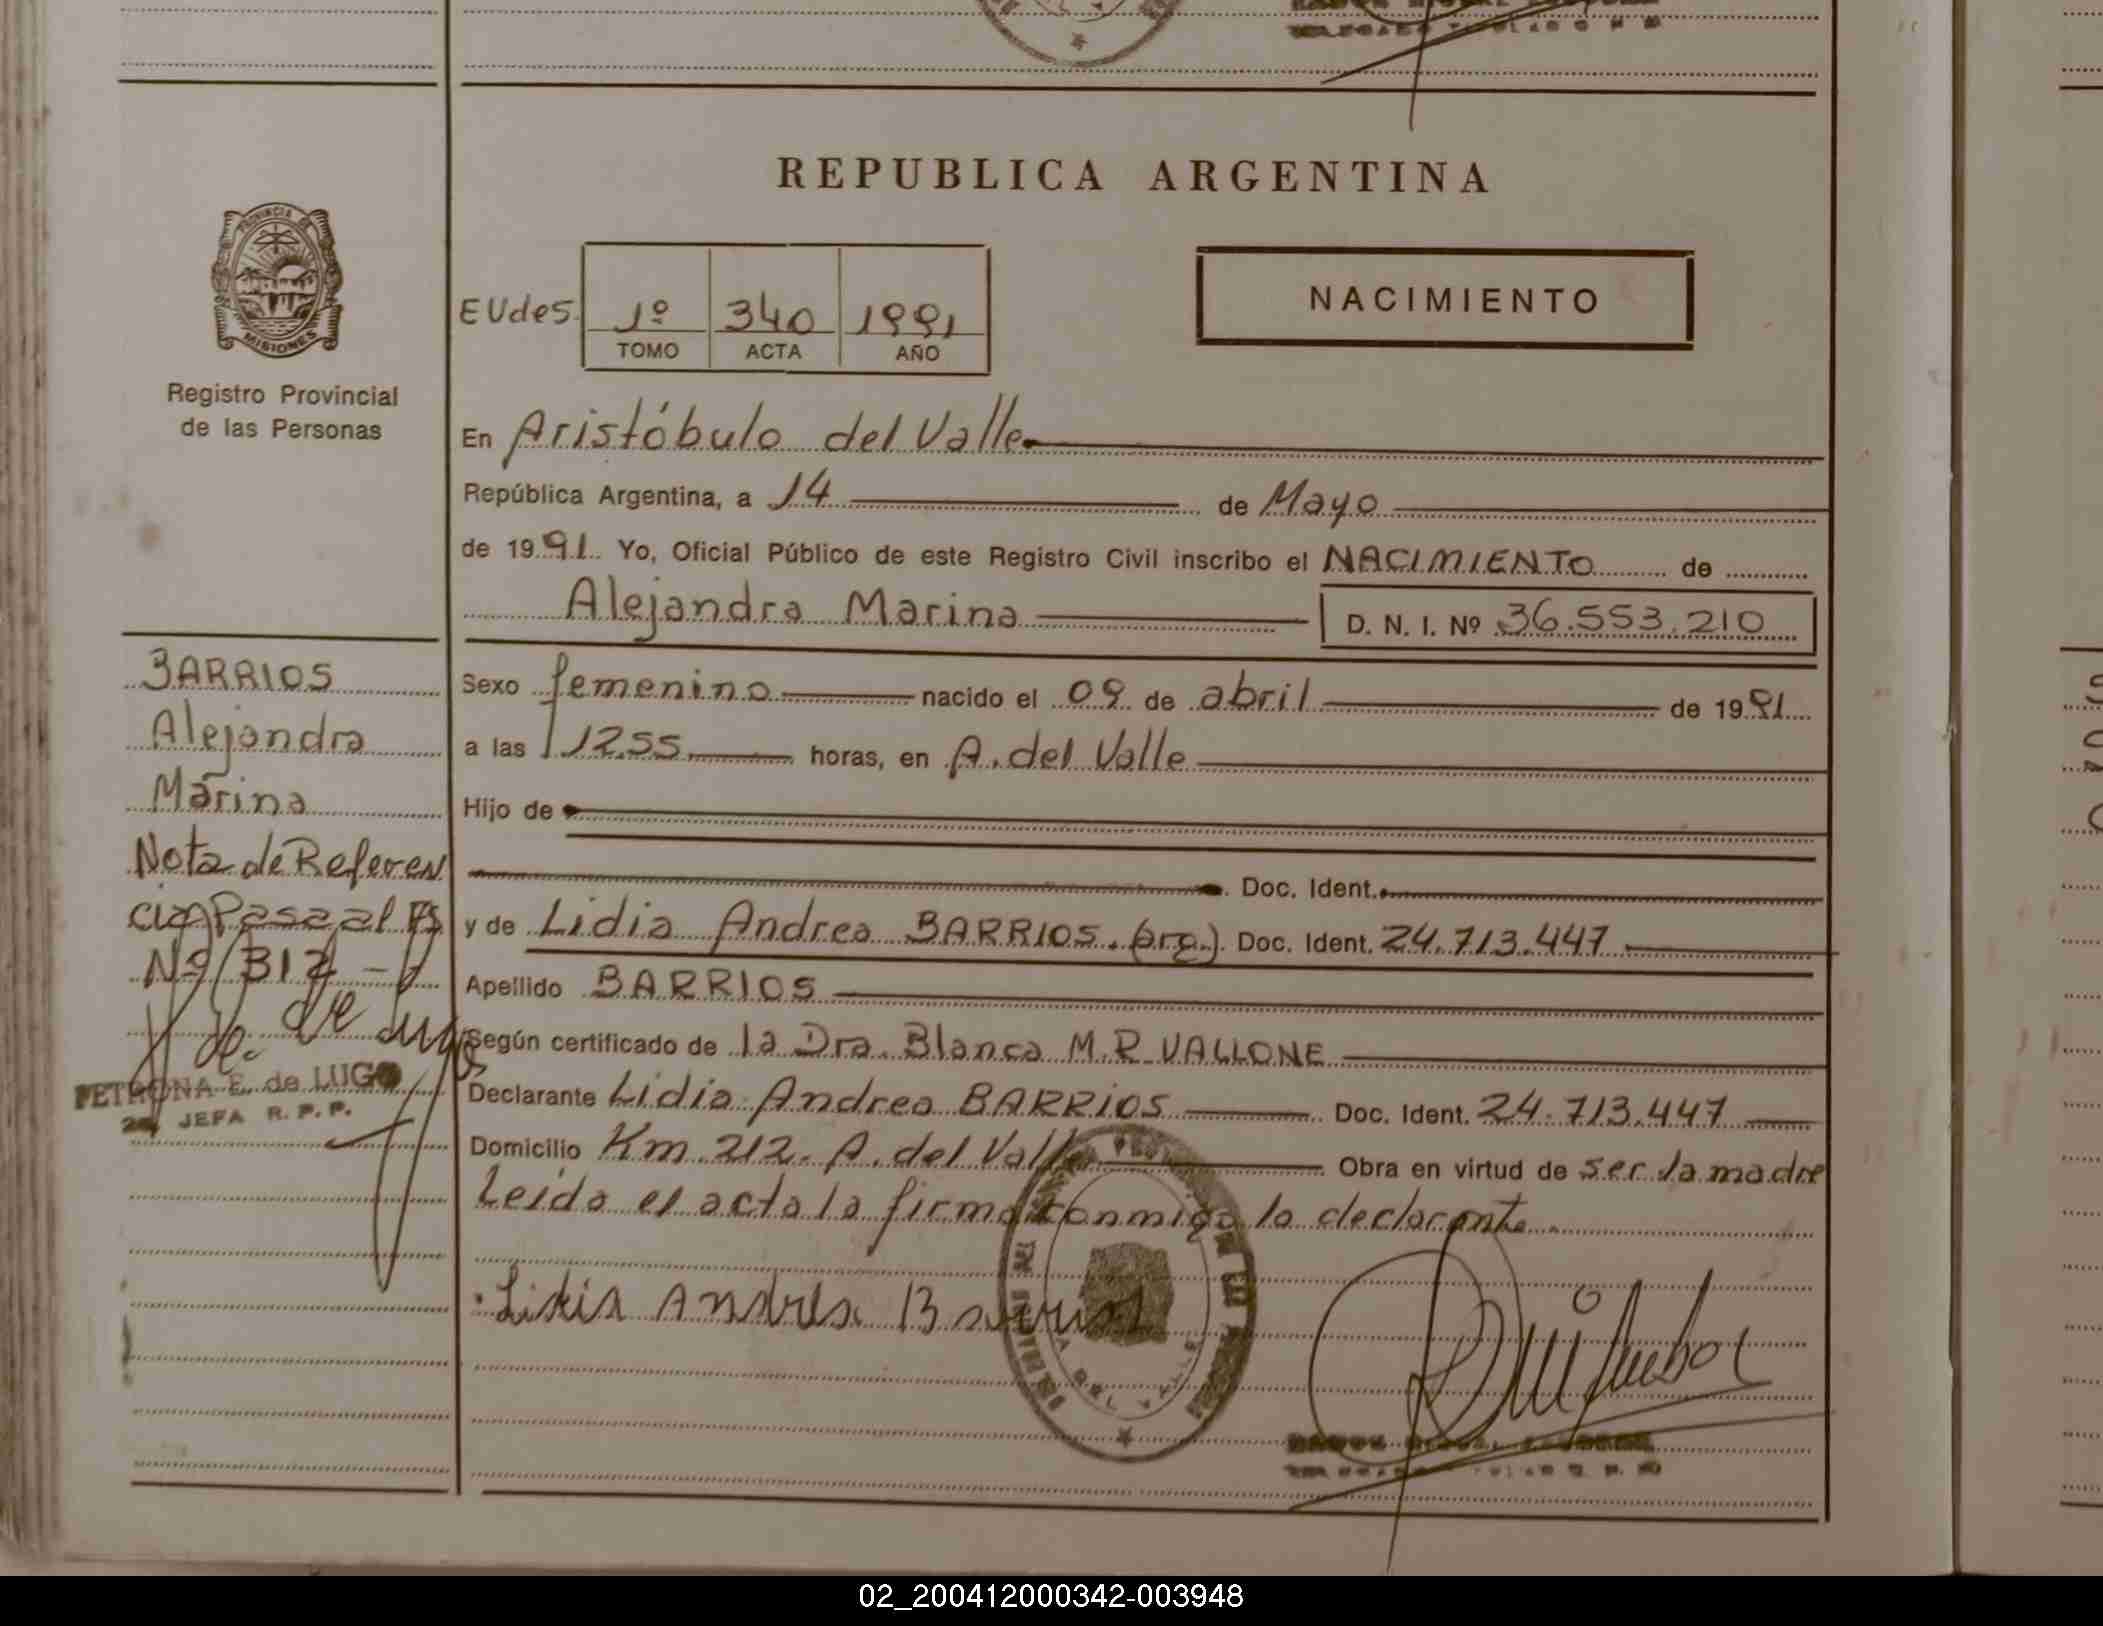 REPUBLICA ARGENTINA
PROVINCIA DE
MISIONES
Registro Provincial
de las Personas
EUdes.
1º 340 1991
TOMO ACTA AÑO
NACIMIENTO
En Aristóbulo del Valle
República Argentina, a 14 de Mayo
de 1991 Yo, Oficial Público de este Registro Civil inscribo el NACIMIENTO de
Alejandra Marina D. N. I. Nº 36.553.210
BARRIOS
Alejandra
Marina
Nota de Referen
cia Pasa al Fs
Nº 312 -
PETRONA E. de LUGO
JEFA R. P. P.
Sexo femenino nacido el 09 de abril de 1991
a las 12.55 horas, en A. del Valle
Hijo de
Doc. Ident.
y de Lidia Andrea BARRIOS. (arg.). Doc. Ident. 24.713.447
Apellido BARRIOS
Según certificado de la Dra. Blanca M.R. VALLONE
Declarante Lidia Andrea BARRIOS Doc. Ident. 24.713.447
Domicilio Km 212. A. del Valle Obra en virtud de ser la madre
Leída el acta la firma conmigo la declarante.
Lidia Andrea Barrios
02_200412000342-003948